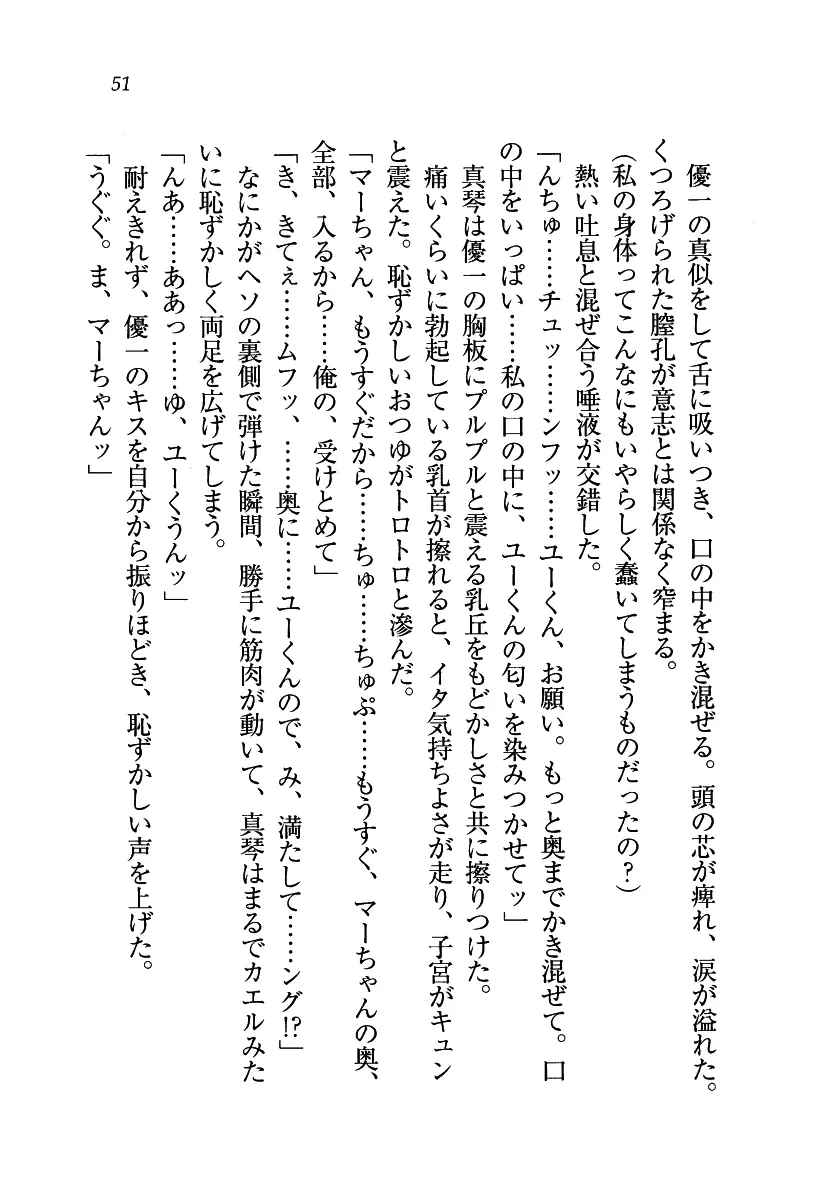 51
優一の真似をして舌に吸いつき、口の中をかき混ぜる。頭の芯が痺れ、涙が溢れた。
くつろげられた膣孔が意志とは関係なく窄まる。
（私の身体ってこんなにもいやらしく蠢いてしまうものだったの？）
熱い吐息と混ぜ合う唾液が交錯した。
「んちゅ……チュッ……ンフッ……ユーくん、お願い。もっと奥までかき混ぜて。口
の中をいっぱい……私の口の中に、ユーくんの匂いを染みつかせてッ」
真琴は優一の胸板にプルプルと震える乳丘をもどかしさと共に擦りつけた。
痛いくらいに勃起している乳首が擦れると、イタ気持ちよさが走り、子宮がキュン
と震えた。恥ずかしいおつゆがトロトロと滲んだ。
「マーちゃん、もうすぐだから……ちゅ……ちゅぷ……もうすぐ、マーちゃんの奥、
全部、入るから……俺の、受けとめて」
「き、きてぇ……ムフッ、……奥に……ユーくんので、み、満たして……ング!?」
なにかがヘソの裏側で弾けた瞬間、勝手に筋肉が動いて、真琴はまるでカエルみた
いに恥ずかしく両足を広げてしまう。
「んあ……ああっ……ゆ、ユーくうんッ」
耐えきれず、優一のキスを自分から振りほどき、恥ずかしい声を上げた。
「うぐぐ。ま、マーちゃんッ」